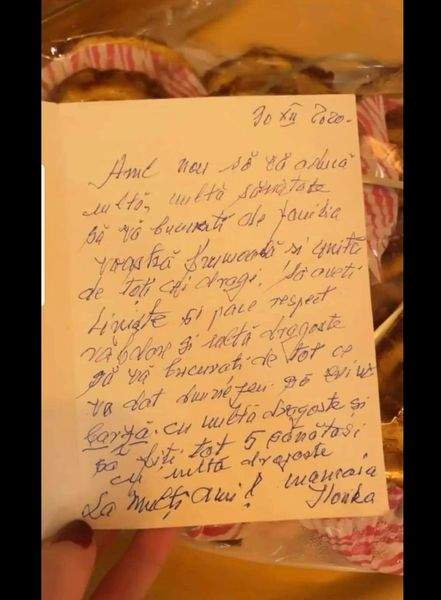 30 XII 2020.
Anul nou să vă aducă
multă, multă sănătate
să vă bucurați de familia
voastră frumoasă si unită
de toți cei dragi. Să aveti
Liniște si pace respect
răbdare și multă dragoste
să vă bucurati de tot ce
va dat dumnezeu.
cu multă dragoste și
să fiți tot 5 sănătași
cu multă dragoste
La Mulți Ani! mamaia
Ilonka